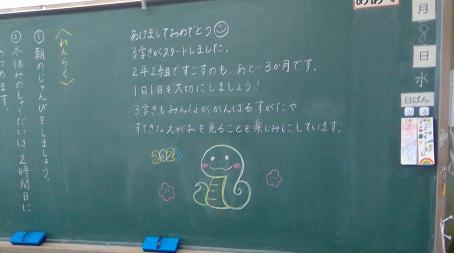 あけましておめでとう
3学きがスタートしました。
2年2組ですごすのも、あと一3か月です。
1日1日を大切にしましょう!
3学きもみんなががんばるすがたや
すてきなえがおを見ることを楽しみにしています。
2025
月
8
日
水
日ばん
〈れんらく〉
①朝のじゅんびをしましょう。
②冬休みのしゅくだいは、2時間目に
あつめます。